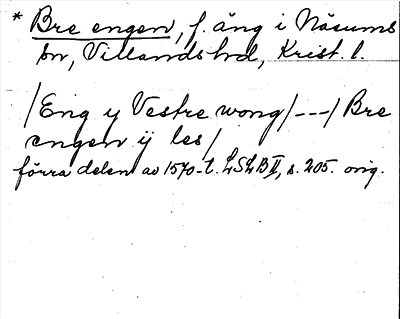 * Bre engen, f. äng i Näsums
sn, Villands hd, Krist. l.
/Eng y Vestre wong/---/Bre
engen ij les/
förra delen av 1570-t. LSLB II, s. 205. orig.